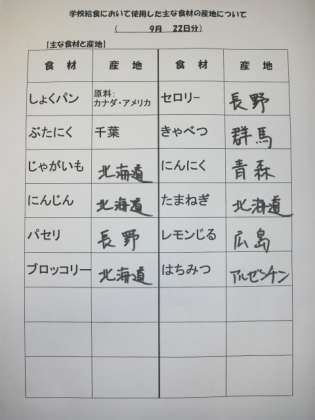 学校給食において使用した主な食材の産地について
( 9月 22日分)
【主な食材と産地】
食 材 産 地 食 材 産 地
しょくパン 原料: カナダ・アメリカ セロリー 長野
ぶたにく 千葉 きゃべつ 群馬
じゃがいも 北海道 にんにく 青森
にんじん 北海道 たまねぎ 北海道
パセリ 長野 レモンじる 広島
ブロッコリー 北海道 はちみつ アルゼンチン